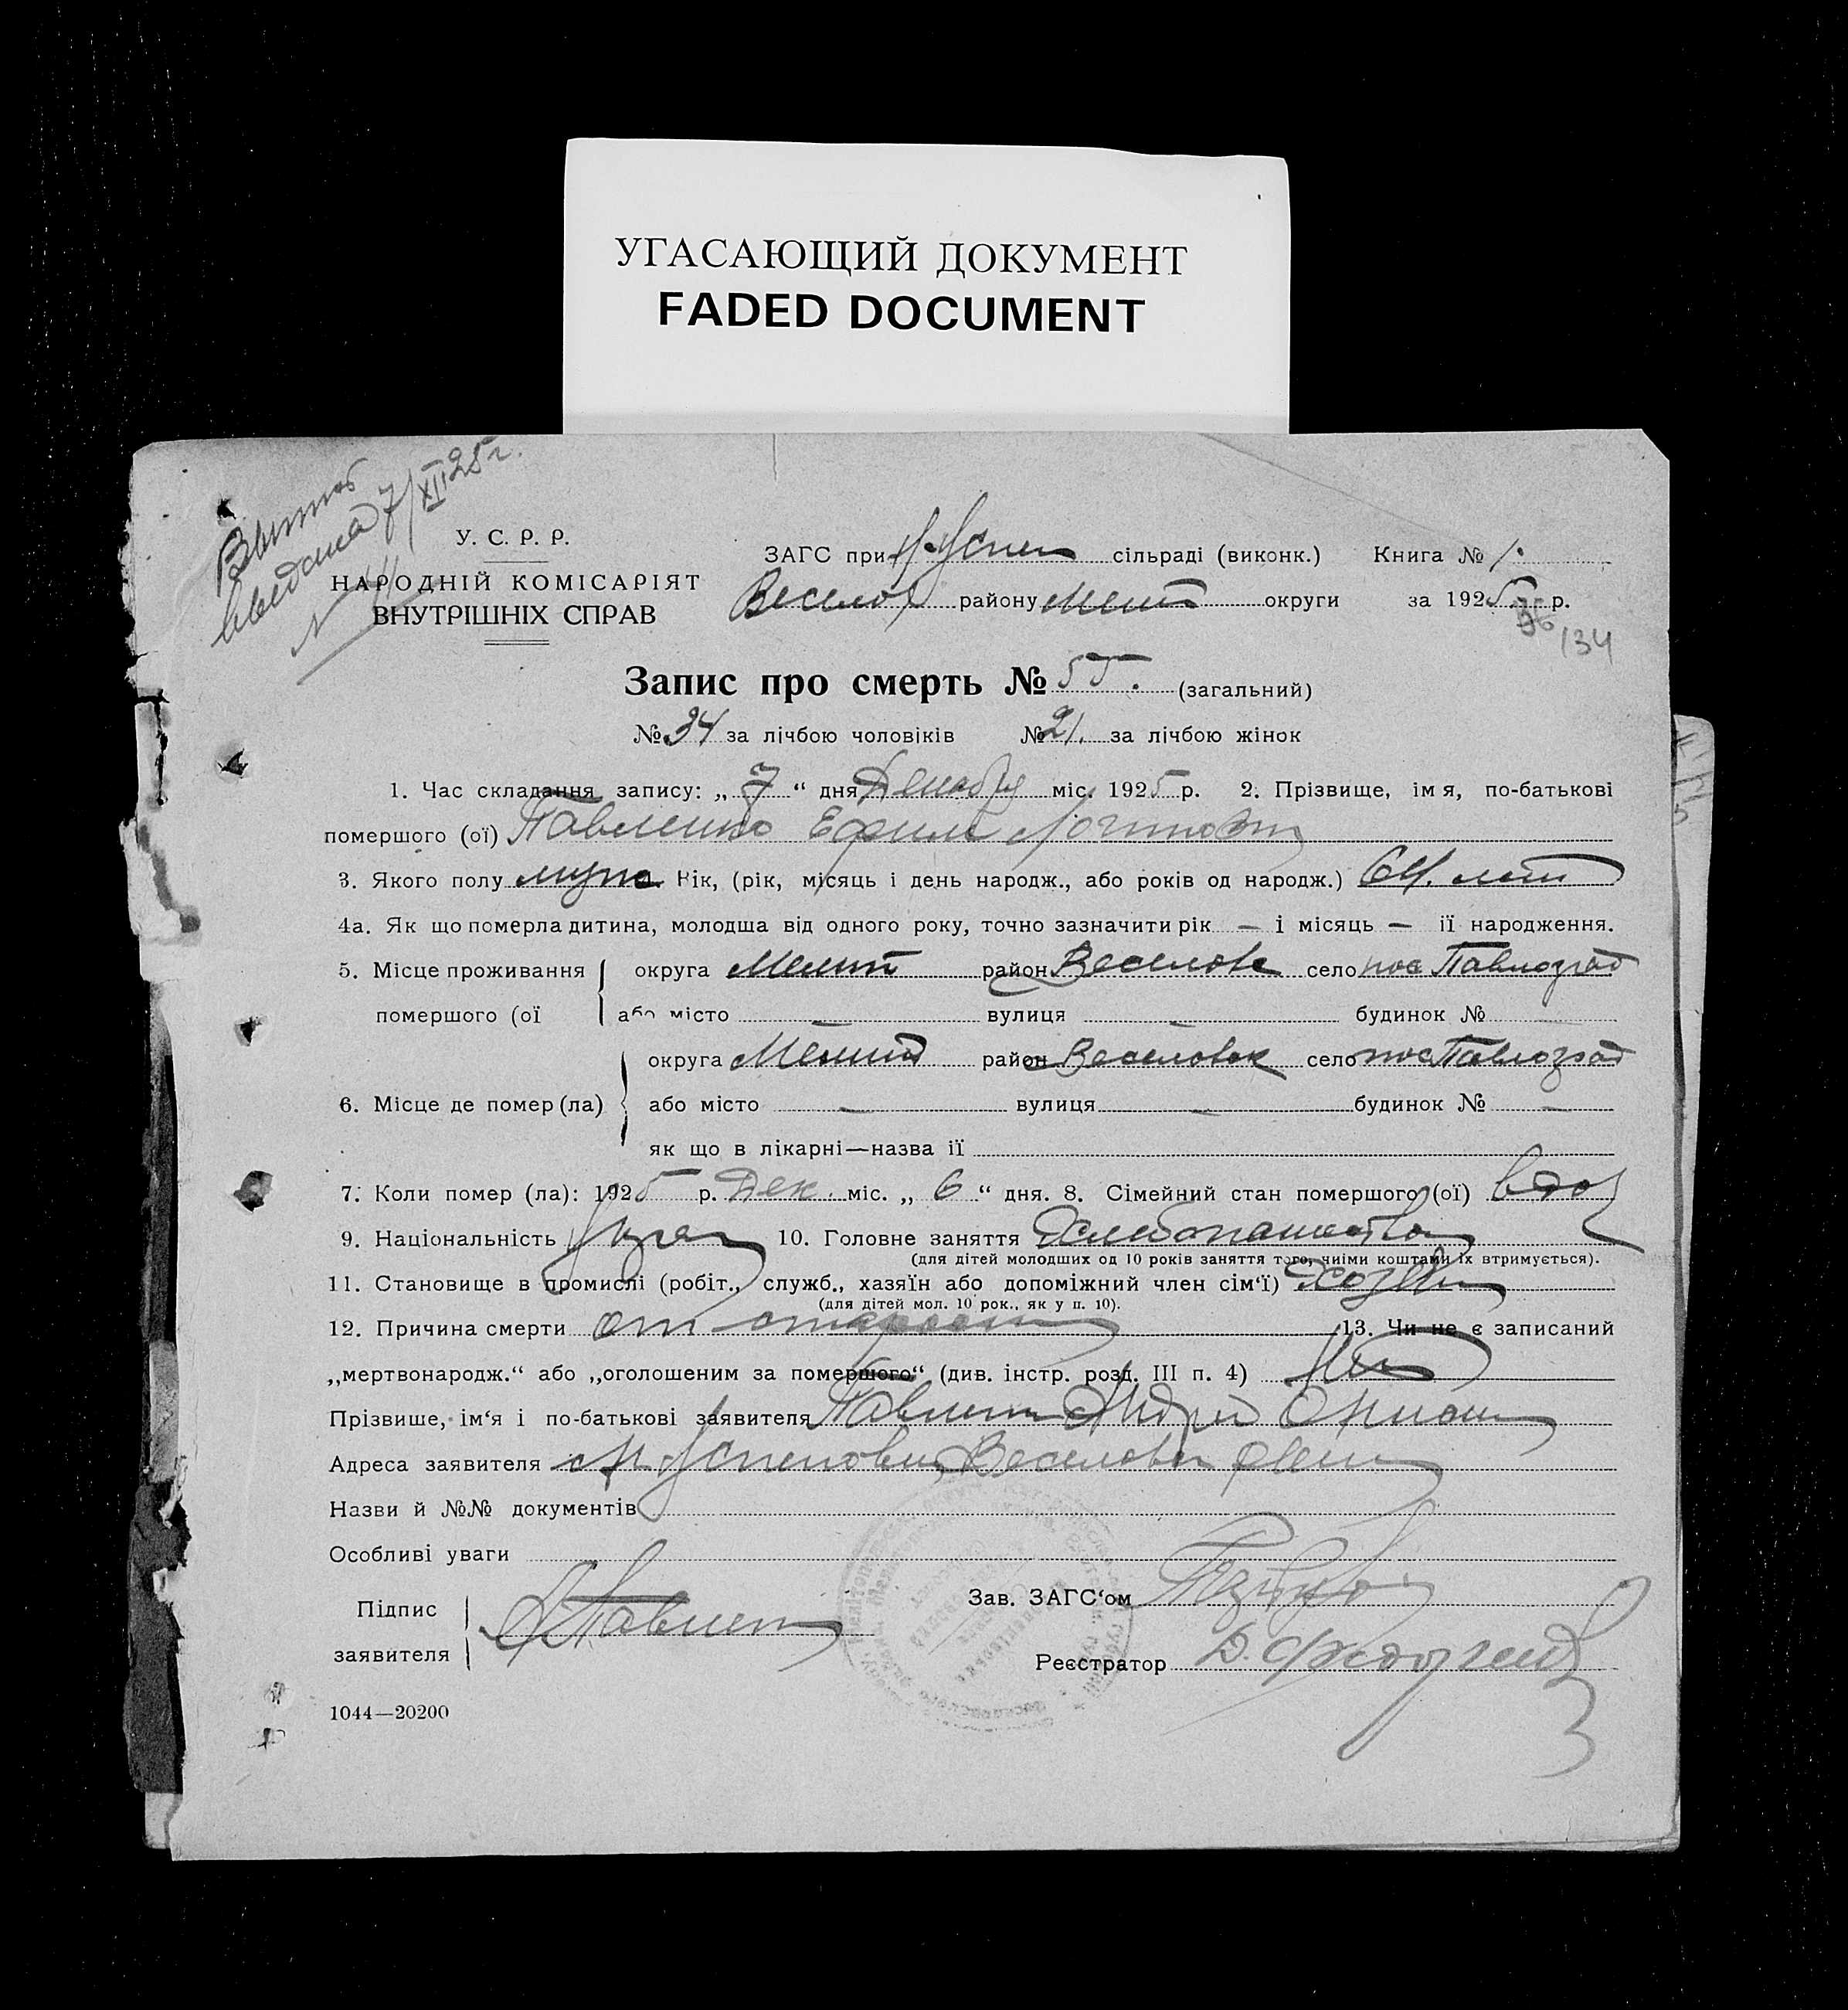 УГАСАЮЩИЙ ДОКУМЕНТ
FADED DOCUMENT
7/XII 25 г.
У. С. Р. Р.
НАРОДНІЙ КОМІСАРІЯТ
ВНУТРІШНІХ СПРАВ
ЗАГС при сільраді (виконк.) Книга № 1.
Весело району Мелит округи за 1925 р.
134
Запис про смерть № 55. (загальний)
№ 34 за лічбою чоловіків № 21. за лічбою жінок
1. Час складання запису: „ 7 “ дня Декабря міс. 1925 р. 2. Прізвище, імя, по-батькові
помершого (ої) Павленко Ефим Логинов
3. Якого полу мужс. Вік, (рік, місяць і день народж., або років од народж.) 64. лет
4а. Як що померла дитина, молодша від одного року, точно зазначити рік — і місяць — її народження.
5. Місце проживання округа Мелит район Веселовс село пос Павлоград
помершого (ої або місто вулиця будинок №
округа Мелит район Веселовск село пос Павлоград
6. Місце де помер (ла) або місто — вулиця — будинок № —
як що в лікарні—назва її
7. Коли помер (ла): 1925 р. Дек. міс. „ 6 “ дня. 8. Сімейний стан помершого (ої) вдов
9. Національність Укра 10. Головне заняття Хлебопашество
(для дітей молодших од 10 років заняття того, чиїми коштами їх втримується).
11. Становище в промислі (робіт., служб., хазяїн або допоміжний член сім‘ї) Хозяин
(для дітей мол. 10 рок., як у п. 10).
12. Причина смерти от старости 13. Чи не є записаний
„мертвонародж.“ або „оголошеним за помершого“ (див. інстр. розд. III п. 4) Нет
Прізвише, ім‘я і по-батькові заявителя Павлен Андрей
Адреса заявителя
Назви й №№ документів
Особливі уваги
Підпис
заявителя А Павлен
Зав. ЗАГС‘ом
Реєстратор Д.
1044—20200